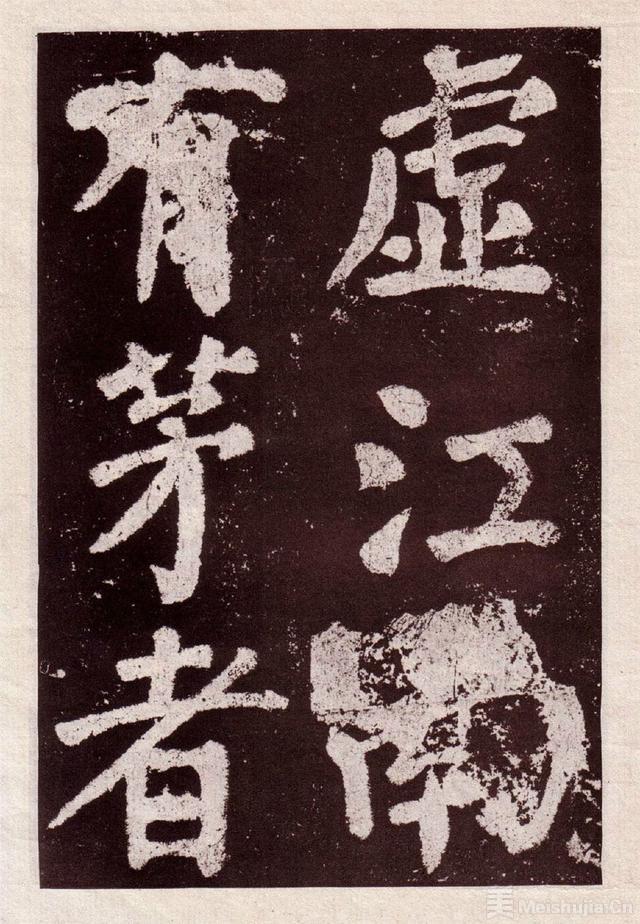 虚江南
有茅者
Meishujia.Cn